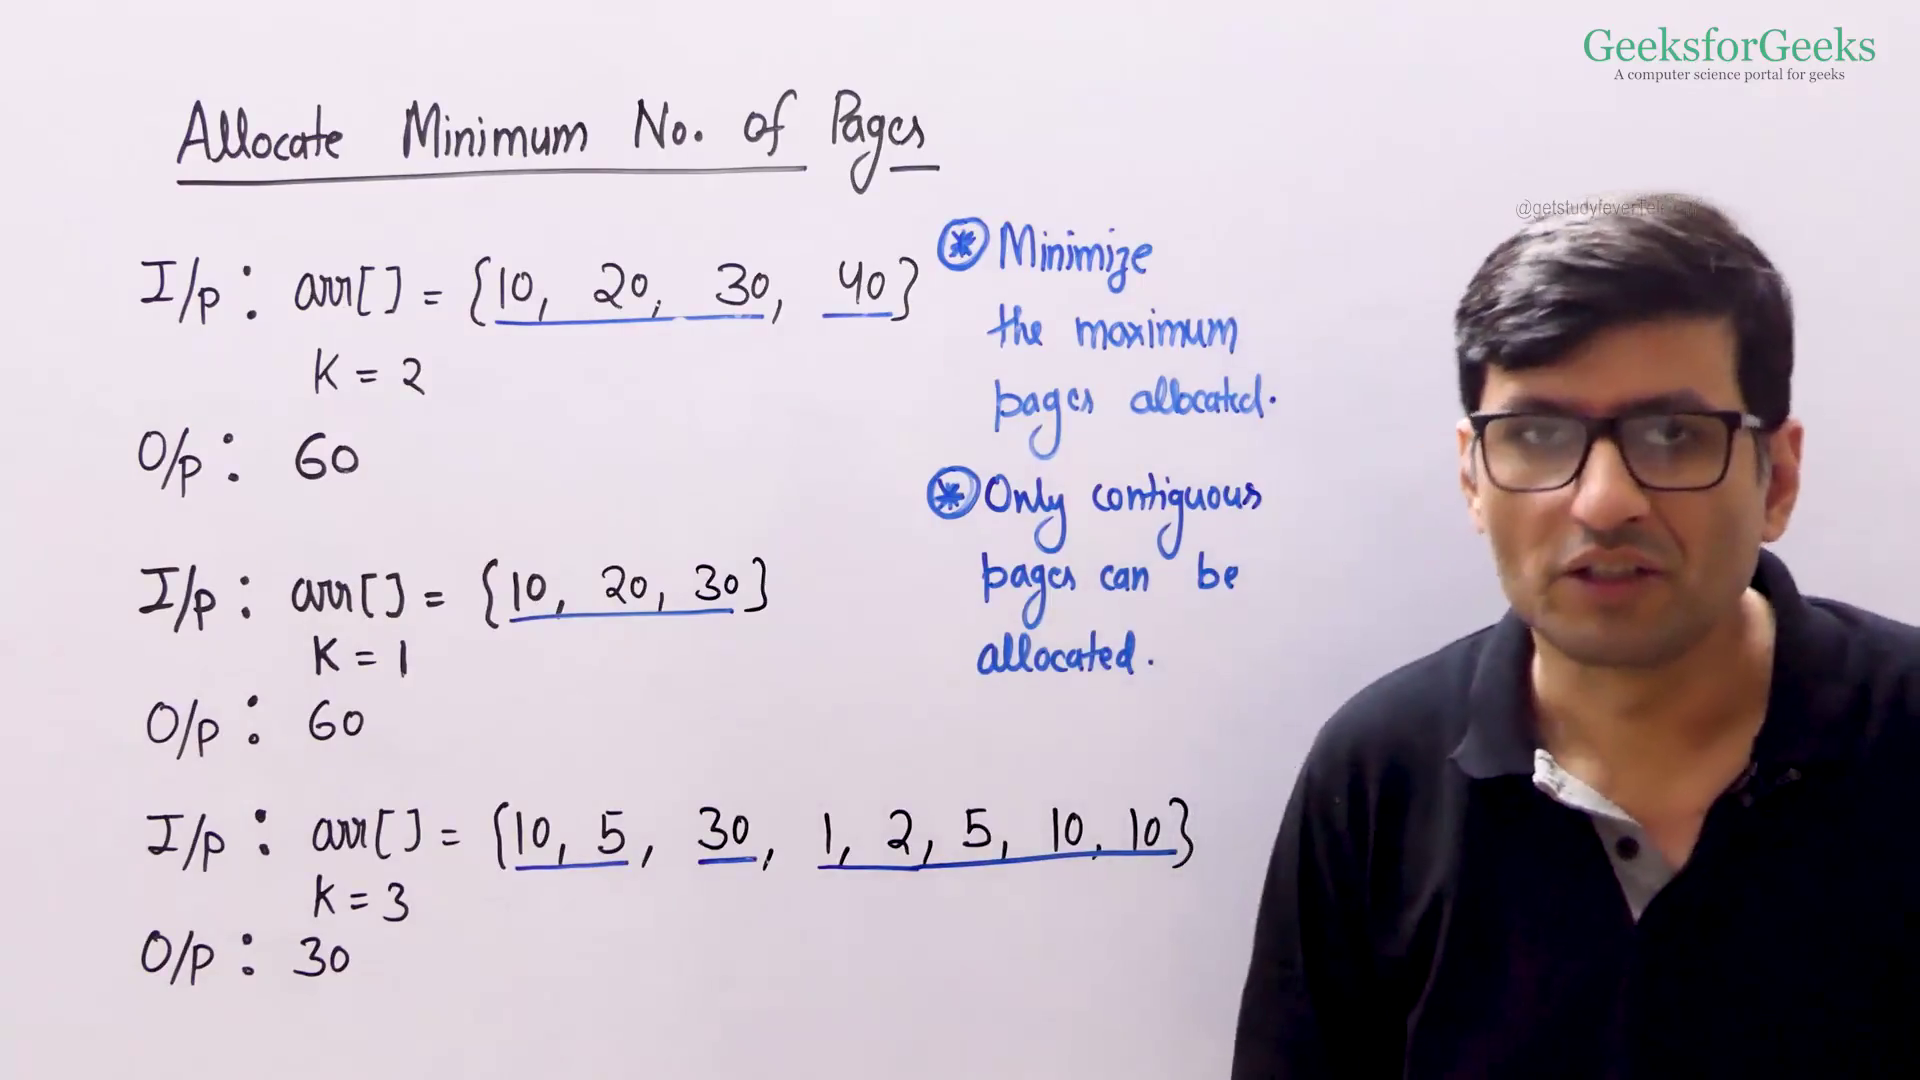 GeeksforGeeks
A computer science portal for geeks
Allocate Minimum No. of Pages
I/p : arr[] = {10, 20, 30, 40}
K = 2
O/p : 60
I/p : arr[] = {10, 20, 30}
K = 1
O/p : 60
I/p : arr[] = {10, 5, 30, 1, 2, 5, 10, 10}
K = 3
O/p : 30
* Minimize
the maximum
pages allocated.
* Only contiguous
pages can be
allocated.